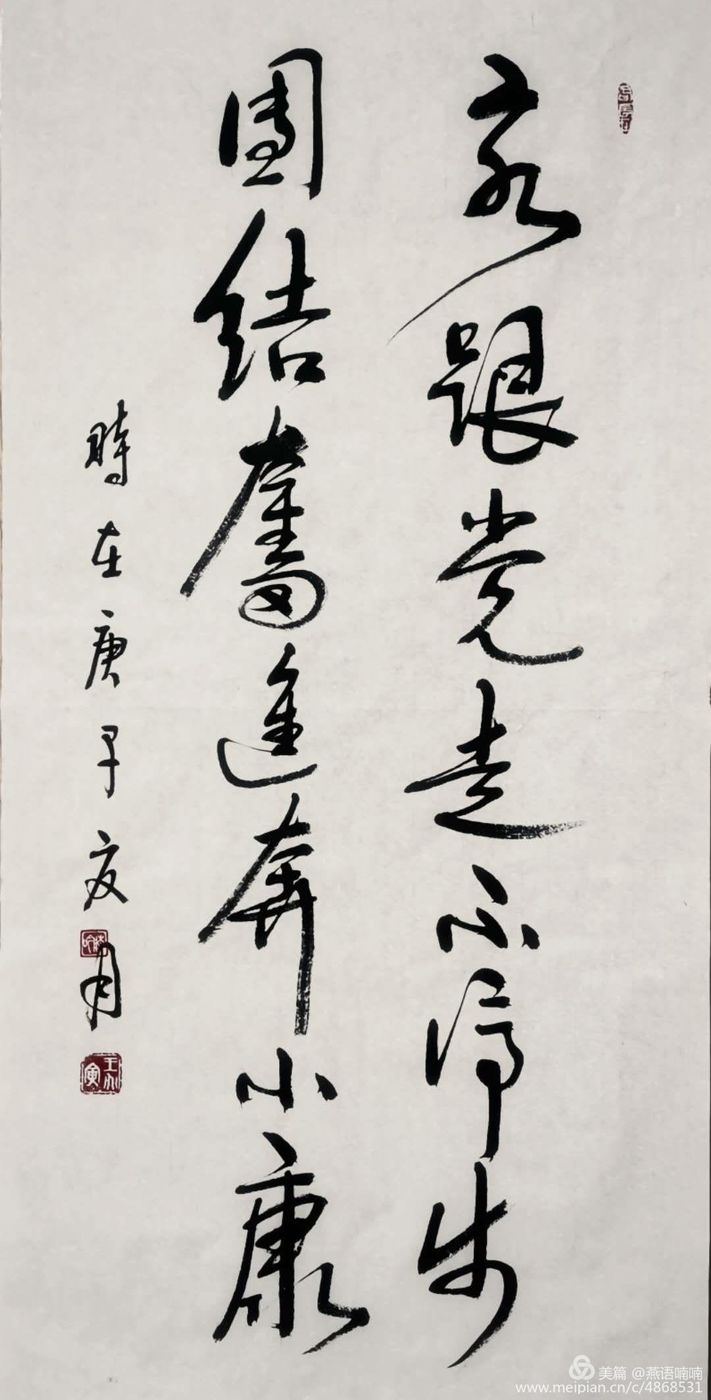 永跟党走不停步
團结奮進奔小康
時在庚子夏
美篇 @燕语喃喃
www.meipian.cn/c/4868531